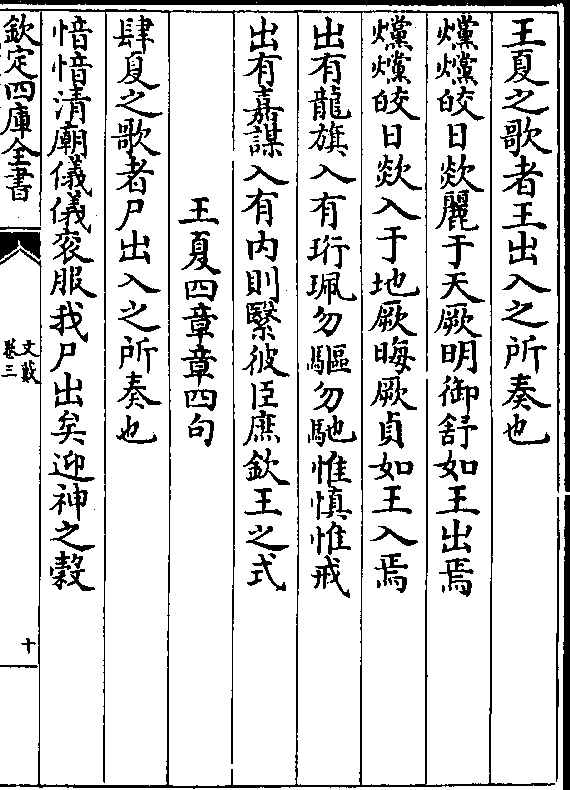 王夏之歌者王出入之所奏也
爣爣皎日欻麗于天厥明御舒如王出焉
爣爣皎日欻入于地厥晦厥貞如王入焉
出有龍旗入有珩珮勿驅勿馳惟慎惟戒
出有嘉謀入有内則繄彼臣庶欽王之式
王夏四章章四句
肆夏之歌者尸出入之所奏也
愔愔清廟儀儀衮服我尸出矣迎神之穀
欽定四庫全書
文藪
卷三
十